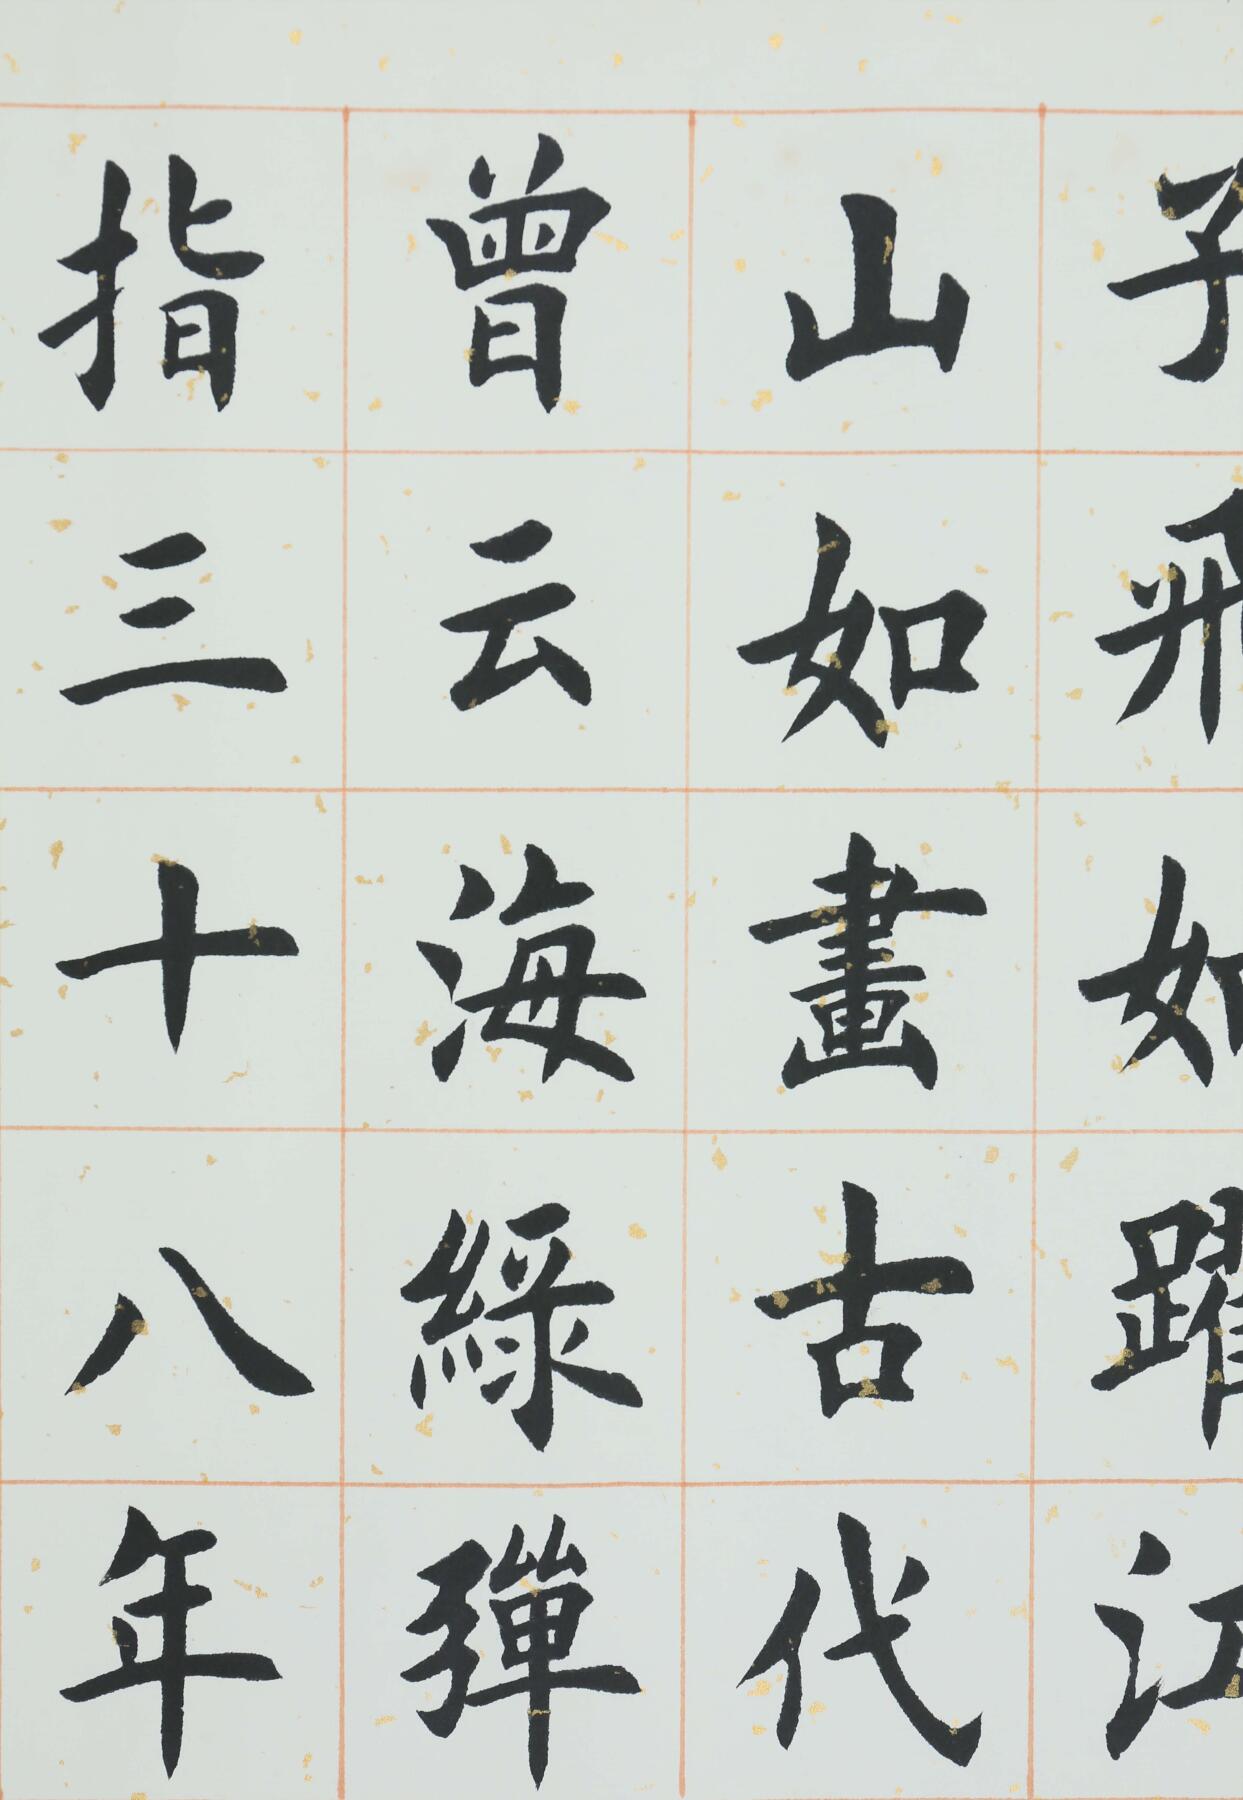 子飛如躍江
山如畫古代
曾云海緑彈
指三十八年